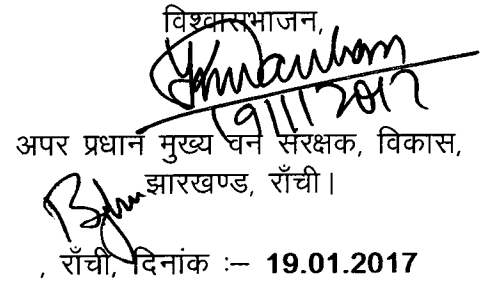 विश्वासभाजन,
19/1/2017
अपर प्रधान मुख्य वन संरक्षक, विकास,
झारखण्ड, राँची।
, राँची, दिनांक :– 19.01.2017